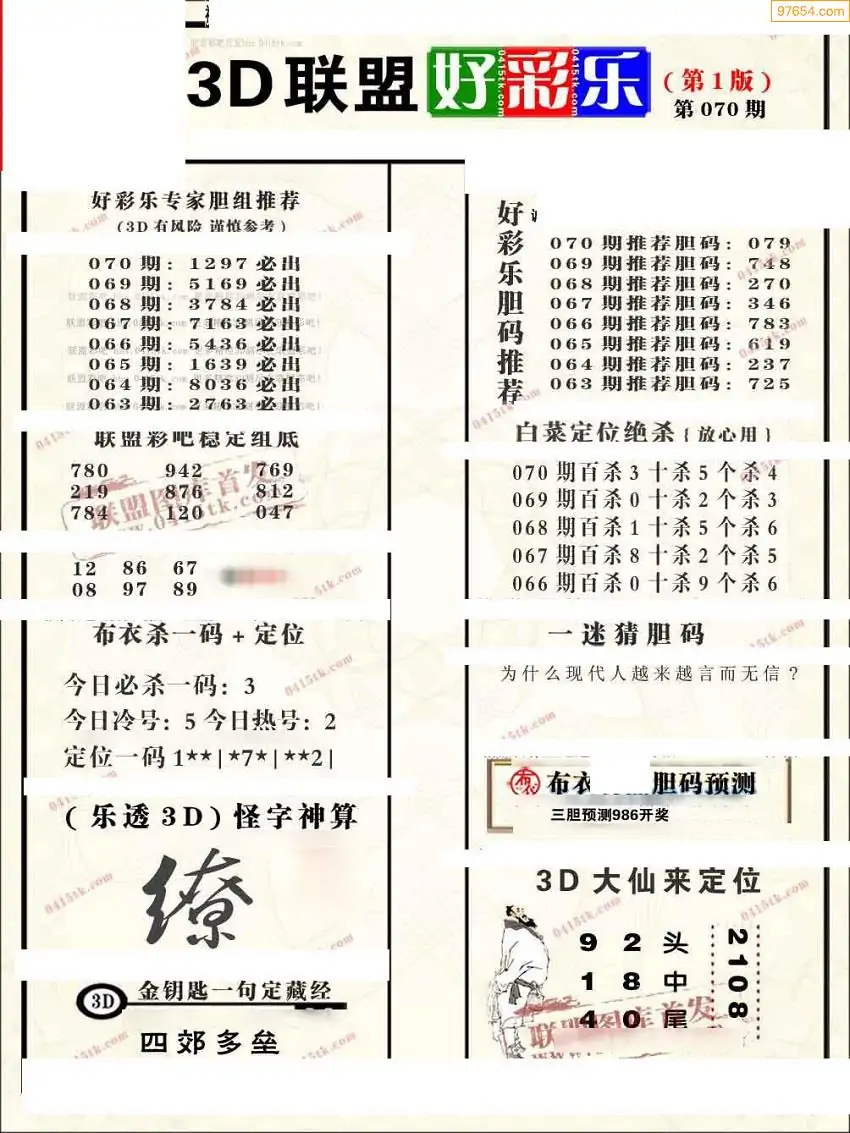 97654.com
3D联盟好彩乐
(第1版)
第070期
好彩乐专家胆组推荐
(3D有风险 谨慎参考)
070期:1297必出
069期:5169必出
068期:3784必出
067期:7163必出
066期:5436必出
065期:1639必出
064期:8036必出
063期:2763必出
联盟彩吧稳定组底
780 942 769
219 876 812
784 120 047
12 86 67
08 97 89
布衣杀一码+定位
今日必杀一码:3
今日冷号:5今日热号:2
定位一码1**|*7*|**2|
(乐透3D)怪字神算
缭
3D
金钥匙一句定藏经
四郊多垒
好彩乐胆码推荐
070期推荐胆码:079
069期推荐胆码:748
068期推荐胆码:270
067期推荐胆码:346
066期推荐胆码:783
065期推荐胆码:619
064期推荐胆码:237
063期推荐胆码:725
白菜定位绝杀{放心用}
070期百杀3十杀5个杀4
069期百杀0十杀2个杀3
068期百杀1十杀5个杀6
067期百杀8十杀2个杀5
066期百杀0十杀9个杀6
一迷猜胆码
为什么现代人越来越言而无信?
布衣
布衣 胆码预测
三胆预测986开奖
3D大仙来定位
9 2 头
1 8 中
4 0 尾
2108
联盟图库首发
www.0415tk.com
0415tk.com